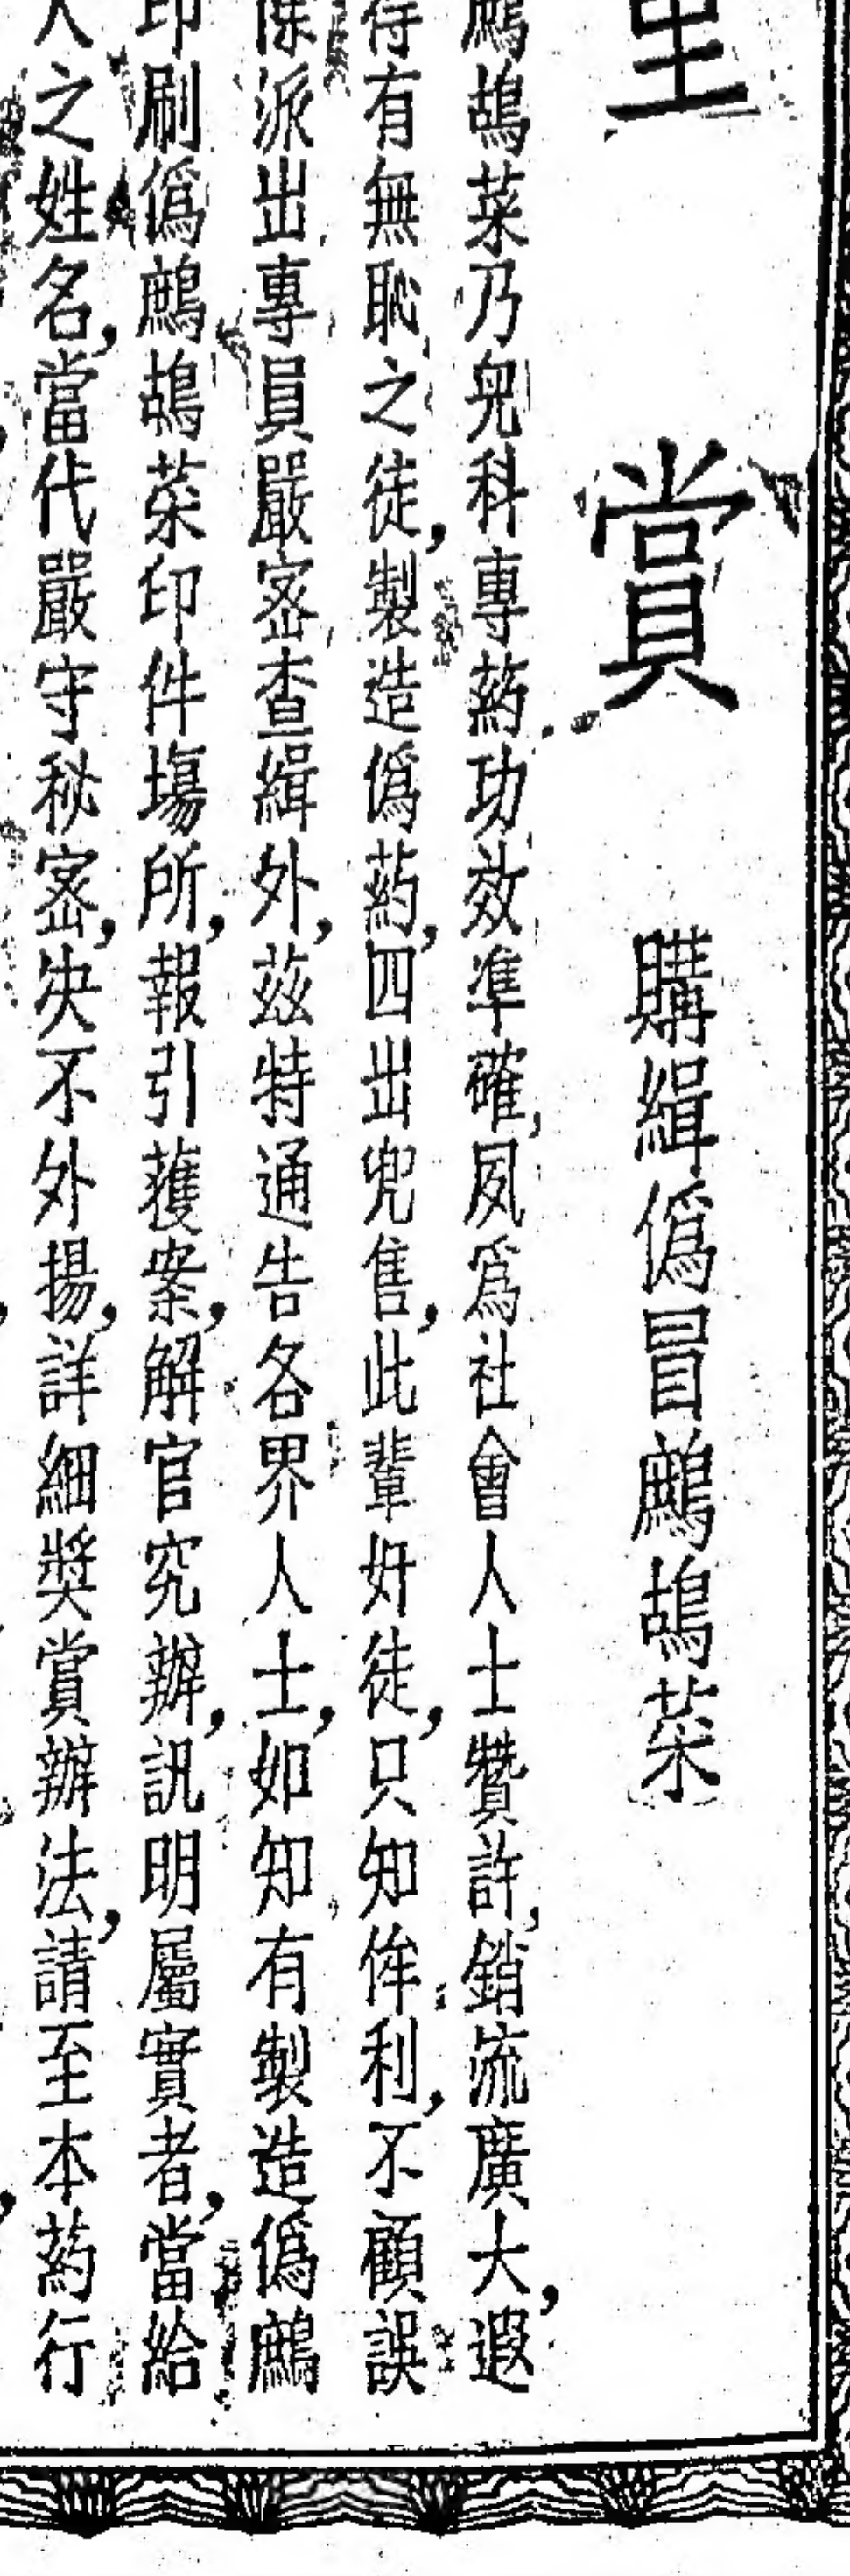 賞
購緝僞冒鷓鴣菜
鷓鴣菜乃兒科專葯功效準確，夙爲社會人士贊許，銷流廣大，遐
有無恥之徒，製造僞葯，四出兜售，此輩奸徒，只知侔利，不顧誤
派出專員嚴密查緝外，茲特通告各界人士，如知有製造僞鷓
印刷僞鷓鴣菜印件塲所，報引獲案，解官究辦，訊明屬實者，當給
人之姓名，當代嚴守秘密，决不外揚，詳細獎賞辦法，請至本葯行